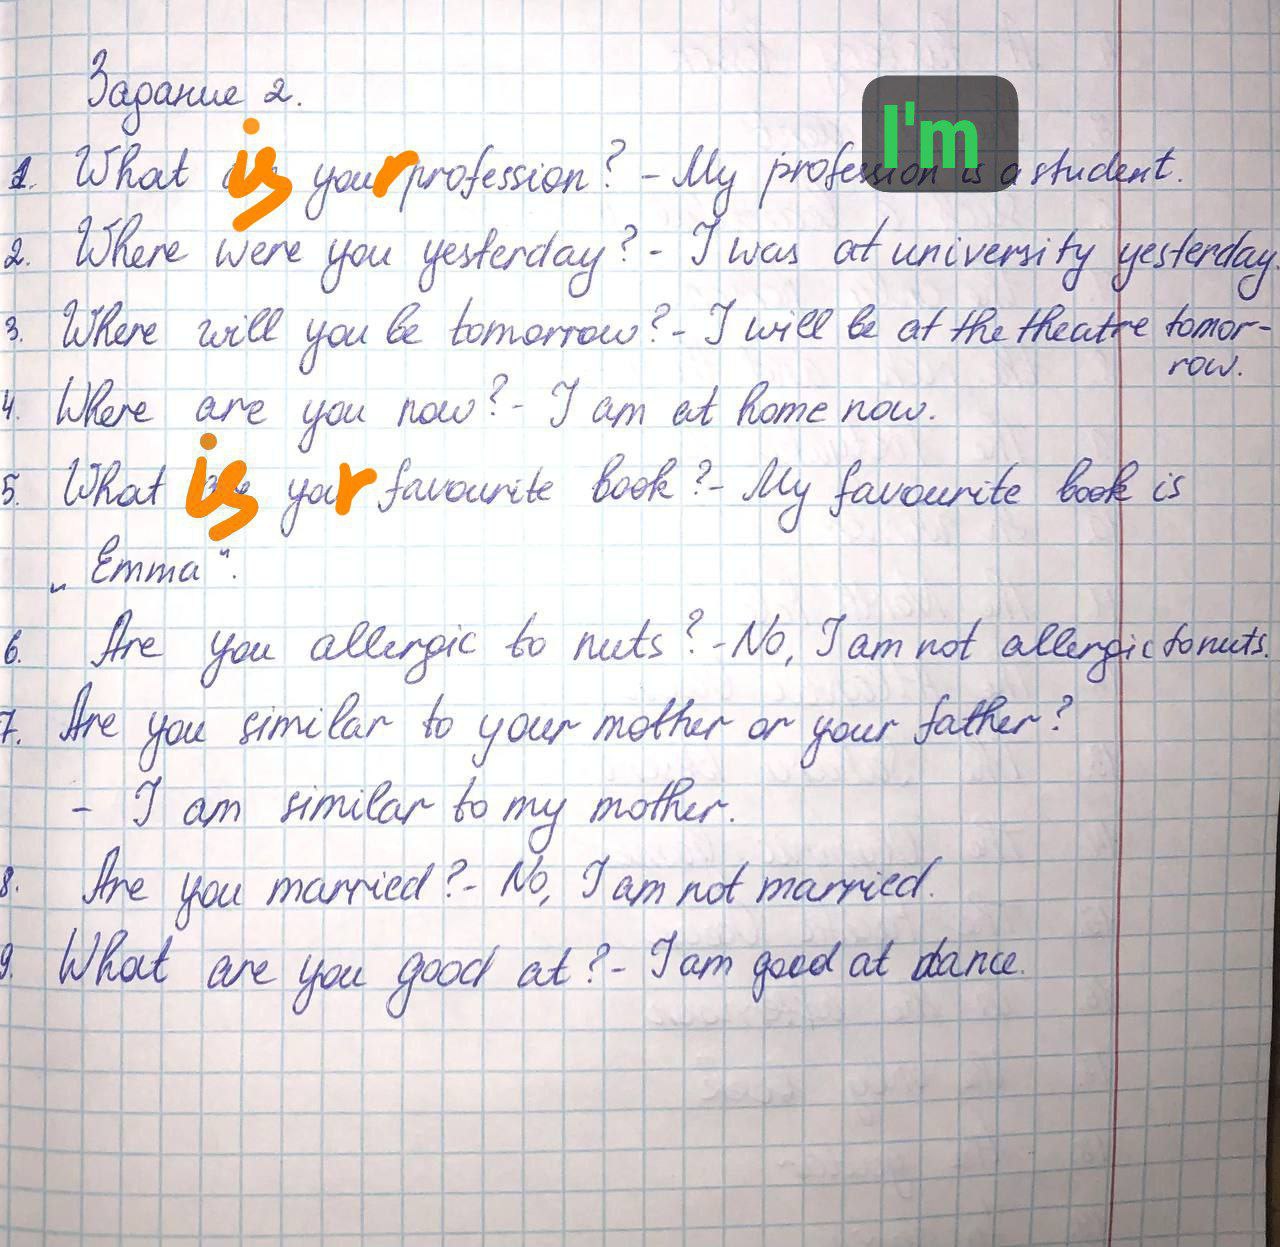 Задание 2.
1. What is your profession? - My profession is I'm a student.
2. Where were you yesterday? - I was at university yesterday.
3. Where will you be tomorrow? - I will be at the theatre tomor-
row.
4. Where are you now? - I am at home now.
5. What is your favourite book? - My favourite book is
„Emma“.
6. Are you allergic to nuts? - No, I am not allergic to nuts.
7. Are you similar to your mother or your father?
- I am similar to my mother.
8. Are you married? - No, I am not married.
9. What are you good at? - I am good at dance.